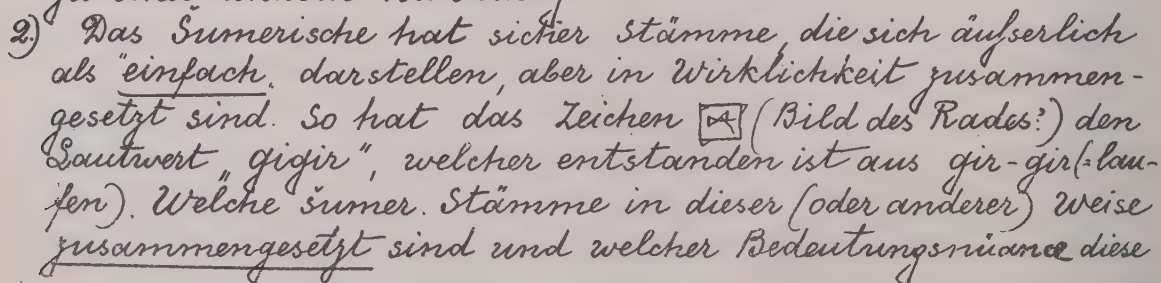 2.) Das Šumerische hat sicher Stämme, die sich äußerlich
als "einfach" darstellen, aber in Wirklichkeit zusammen-
gesetzt sind. So hat das Zeichen (Bild des Rades?) den
Lautwert „gigir“, welcher entstanden ist aus gir-gir (= lau-
fen). Welche šumer. Stämme in dieser (oder anderer) Weise
zusammengesetzt sind und welcher Bedeutungsnüance diese